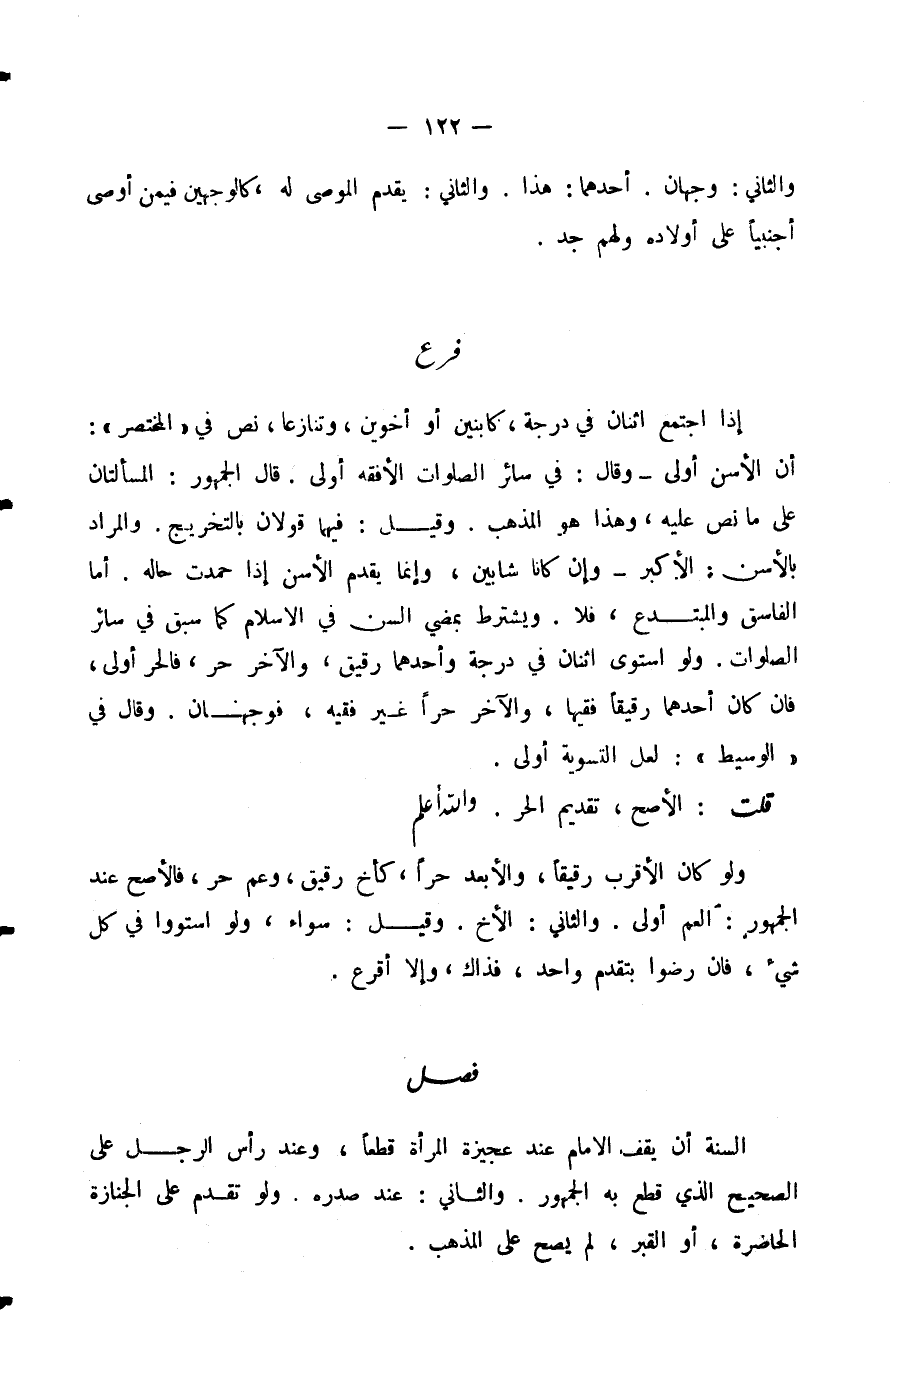 — ١٢٢ —
والثاني : وجهان . أحدهما : هذا . والثاني : يقدم الموصى له ، كالوجهين فيمن أوصى
أجنبياً على أولاده ولهم جد .
فرع
إذا اجتمع اثنان في درجة ، كابنين أو أخوين ، وتنازعا ، نص في « المختصر » :
أن الأسن أولى ــ وقال : في سائر الصلوات الأفقه أولى . قال الجمهور : المسألتان
على ما نص عليه ، وهذا هو المذهب . وقيل : فيها قولان بالتخريج . والمراد
بالأسن : الأكبر ــ وإن كانا شابين ، وإنما يقدم الأسن إذا حمدت حاله . أما
الفاسق والمبتدع ، فلا . ويشترط بمضي السن في الاسلام كما سبق في سائر
الصلوات . ولو استوى اثنان في درجة وأحدهما رقيق ، والآخر حر ، فالحر أولى ،
فان كان أحدهما رقيقاً فقيها ، والآخر حراً غير فقيه ، فوجهان . وقال في
« الوسيط » : لعل التسوية أولى .
قلت : الأصح ، تقديم الحر . والله أعلم
ولو كان الأقرب رقيقاً ، والأبعد حراً ، كأخ رقيق ، وعم حر ، فالأصح عند
الجمهور : العم أولى . والثاني : الأخ . وقيل : سواء ، ولو استووا في كل
شيء ، فان رضوا بتقدم واحد ، فذاك ، وإلا أقرع .
فصل
السنة أن يقف الامام عند عجيزة المرأة قطعاً ، وعند رأس الرجل على
الصحيح الذي قطع به الجمهور . والثاني : عند صدره . ولو تقدم على الجنازة
الحاضرة ، أو القبر ، لم يصح على المذهب .